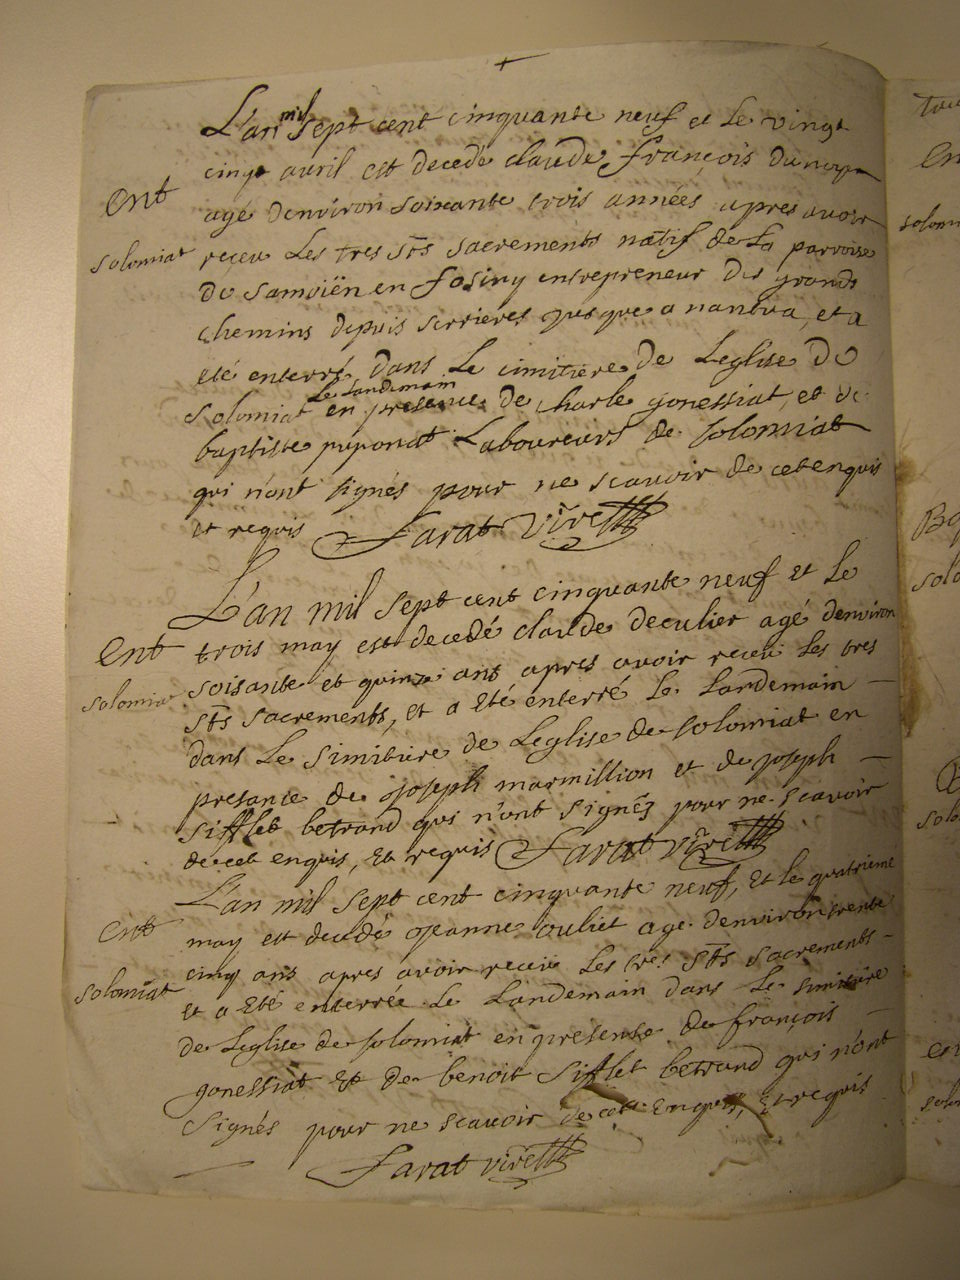 L'an mil sept cent cinquante neuf et Le vingt
cinq avril est decedé claude françois dunoyer
Ent
agé denviron soixante trois années apres avoir
solomiat
receu Les tres sts sacrements natif de La parroisse
de samoiën en fosiny entrepreneur des grands
chemins depuis serrieres jusque a nantua, et a
été enterré dans Le cimitiere de Leglise de
Le Landemain
solomiat en presence de charle gonessiat, et de
baptiste puponat Laboureurs de solomiat
qui n'ont signés pour ne scavoir de cet enquis
et requis farat vire
L'an mil sept cent cinquante neuf et Le
Ent
trois may est decedé claude decullier agé denviron
solomiat
soisante et quinze ans apres avoir receu Les tres
sts sacrements, et a Eté enterré Le Landemain
dans Le Simitiere de Leglise de solomiat en
presance de joseph marmillion et de joseph
sifflet betrand qui n'ont signés pour ne scavoir
de cet enquis, Et requis farat vire
L'an mil sept cent cinquante neuf, Et le quatrieme
Ent
may est decedé jeanne ouliet agé denviron trente
cinq ans apres avoir receu Les tres sts sacrements
solomiat
et a Eté enterrée Le Landemain dans Le simitiere
de Leglise de solomiat en presense de françois
gonessiat Et de benoit sifflet betrand qui n'ont
signés pour ne scavoir de cet Enquis, Et requis
farat vire